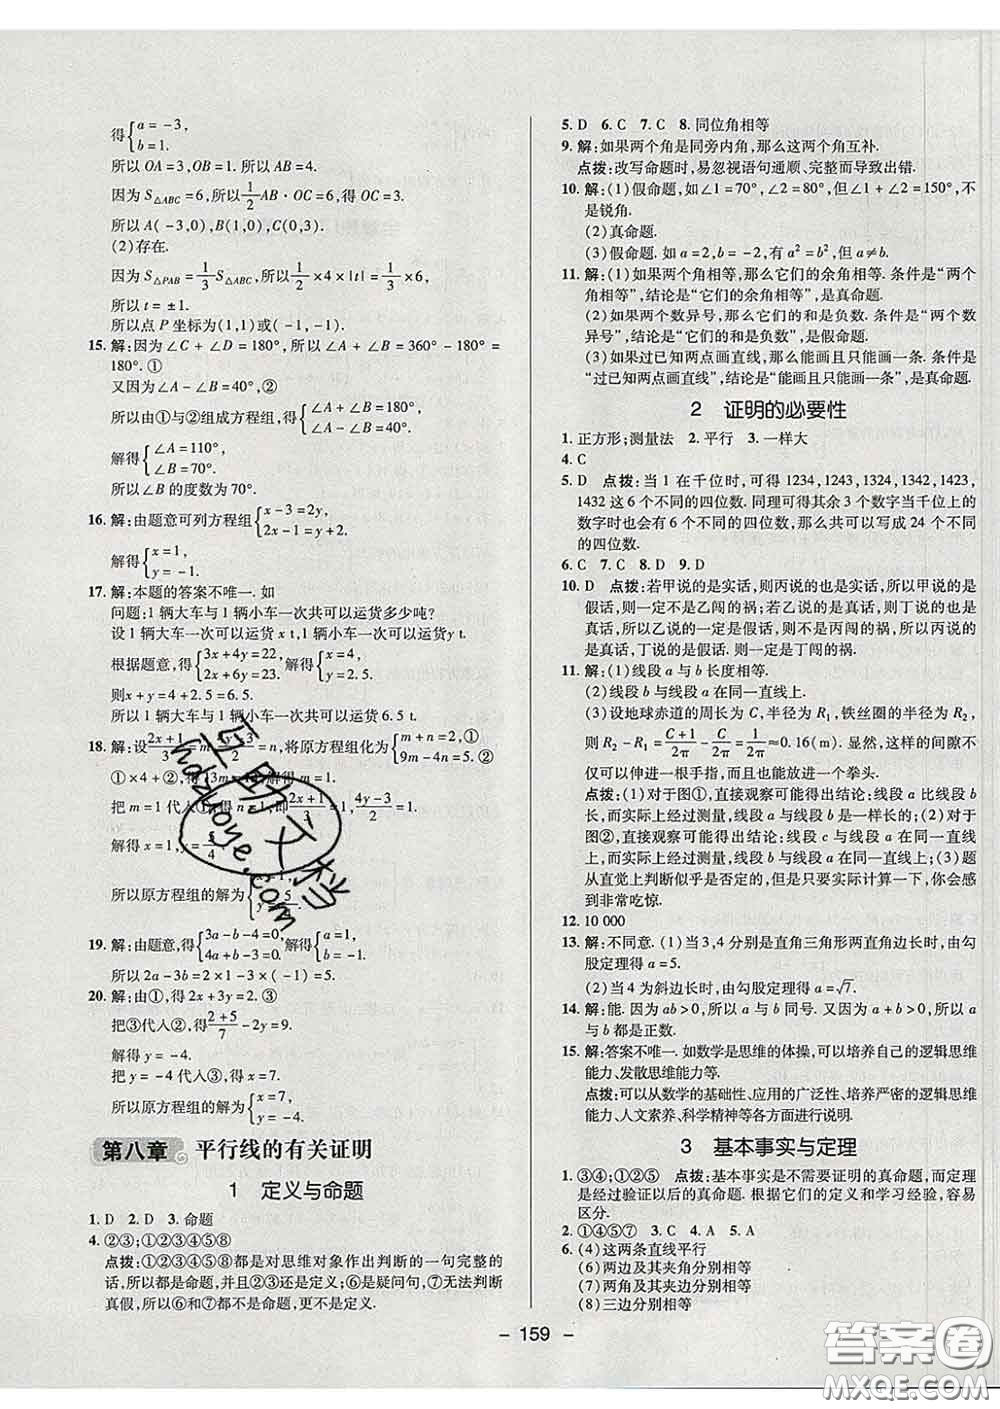 得{a=-3,
b=1.
所以 OA=3,OB=1. 所以 AB=4.
因为 S△ABC=6,所以 1/2 AB·OC=6,得 OC=3.
所以 A(-3,0),B(1,0),C(0,3).
(2)存在.
因为 S△PAB=1/3 S△ABC,所以 1/2×4×|t|=1/3×6,
所以 t=±1.
所以点 P 坐标为(1,1)或(-1,-1).
15. 解:因为∠C+∠D=180°,所以∠A+∠B=360°-180°=
180°.①
又因为∠A-∠B=40°,②
所以由①与②组成方程组,得{∠A+∠B=180°,
∠A-∠B=40°.
解得{∠A=110°,
∠B=70°.
所以∠B 的度数为 70°.
16. 解:由题意可列方程组{x-3=2y,
2x-1=y+2.
解得{x=1,
y=-1.
17. 解:本题的答案不唯一. 如
问题:1 辆大车与 1 辆小车一次共可以运货多少吨?
设 1 辆大车一次可以运货 x t,1 辆小车一次可以运货 y t.
根据题意,得{3x+4y=22,
2x+6y=23. 解得{x=4,
y=2.5.
则 x+y=4+2.5=6.5.
所以 1 辆大车与 1 辆小车一次共可以运货 6.5 t.
18. 解:设 2x+1/3=m, 4y-3/2=n,将原方程组化为{m+n=2,①
9m-4n=5.②
①×4+②,得 13m=13,解得 m=1.
把 m=1 代入①,得 n=1,即 2x+1/3=1, 4y-3/2=1.
解得 x=1,y=5/4.
所以原方程组的解为{x=1,
y=5/4.
19. 解:由题意,得{3a-b-4=0,
4a+b-3=0. 解得{a=1,
b=-1.
所以 2a-3b=2×1-3×(-1)=5.
20. 解:由①,得 2x+3y=2.③
把③代入②,得 2+5/7-2y=9.
解得 y=-4.
把 y=-4 代入③,得 x=7.
所以原方程组的解为{x=7,
y=-4.
第八章 平行线的有关证明
1 定义与命题
1. D 2. D 3. 命题
4. ②③;①②③④⑤⑧
点拨:①②③④⑤⑧都是对思维对象作出判断的一句完整的
话,所以都是命题,并且②③还是定义;⑥是疑问句,⑦无法判断
真假,所以⑥和⑦不是命题,更不是定义.
5. D 6. C 7. C 8. 同位角相等
9. 解:如果两个角是同旁内角,那么这两个角互补.
点拨:改写命题时,易忽视语句通顺、完整而导致出错.
10. 解:(1)假命题,如∠1=70°,∠2=80°,但∠1+∠2=150°,不
是锐角.
(2)真命题.
(3)假命题. 如 a=2,b=-2,有 a²=b²,但 a≠b.
11. 解:(1)如果两个角相等,那么它们的余角相等. 条件是“两个
角相等”,结论是“它们的余角相等”,是真命题.
(2)如果两个数异号,那么它们的和是负数. 条件是“两个数
异号”,结论是“它们的和是负数”,是假命题.
(3)如果过已知两点画直线,那么能画且只能画一条. 条件是
“过已知两点画直线”,结论是“能画且只能画一条”,是真命题.
2 证明的必要性
1. 正方形;测量法 2. 平行 3. 一样大
4. C
5. D 点拨:当 1 在千位时,可得 1234,1243,1324,1342,1423,
1432 这 6 个不同的四位数. 同理可得其余 3 个数字当千位上的
数字时也会有 6 个不同的四位数,那么共可以写成 24 个不同
的四位数.
6. C 7. C 8. D 9. D
10. D 点拨:若甲说的是实话,则丙说的也是实话,所以甲说的是
假话,则一定不是乙闯的祸;若乙说的是真话,则丁说的也是
真话,所以乙说的一定是假话,不是丙闯的祸,所以丙说的是
真话,丁说的是假话. 所以一定是丁闯的祸.
11. 解:(1)线段 a 与 b 长度相等.
(2)线段 b 与线段 a 在同一直线上.
(3)设地球赤道的周长为 C,半径为 R1,铁丝圈的半径为 R2,
则 R2-R1=C+1/2π-C/2π=1/2π≈0.16(m). 显然,这样的间隙不
仅可以伸进一根手指,而且可以伸进一个拳头.
点拨:(1)对于图①,直接观察可能得出结论:线段 a 比线段 b
长,而实际上经过测量,线段 a 与线段 b 是一样长的;(2)对于
图②,直接观察可能得出结论:线段 c 与线段 a 在同一直线
上,而实际上经过测量,线段 b 与线段 a 在同一直线上;(3)题
从直觉上判断似乎是否定的,但是只要实际计算一下,你会感
到非常吃惊.
12. 10 000
13. 解:不同意. (1)当 3,4 分别是直角三角形两直角边长时,由勾
股定理得 a=5.
(2)当 4 为斜边长时,由勾股定理得 a=√7.
14. 解:能. 因为 ab>0,所以 a 与 b 同号. 又因为 a+b>0,所以 a
与 b 都是正数.
15. 解:答案不唯一. 如数学是思维的体操,可以培养自己的逻辑思维
能力、发散思维能力等.
点拨:可以从数学的基础性、应用的广泛性、培养严密的逻辑思维
能力、人文素养、科学精神等各方面进行说明.
3 基本事实与定理
1. ③④;①②⑤ 点拨:基本事实是不需要证明的真命题,而定理
是经过验证以后的真命题. 根据它们的定义和学习经验,容易
区分.
2. ①④⑤⑦ 3. C 4. A 5. A
6. (4)这两条直线平行
(6)两边及其夹角分别相等
(7)两角及其夹边分别相等
(8)三边分别相等
- 159 -
互助文档
hdzuoye.com
答案圈
MXQE.COM